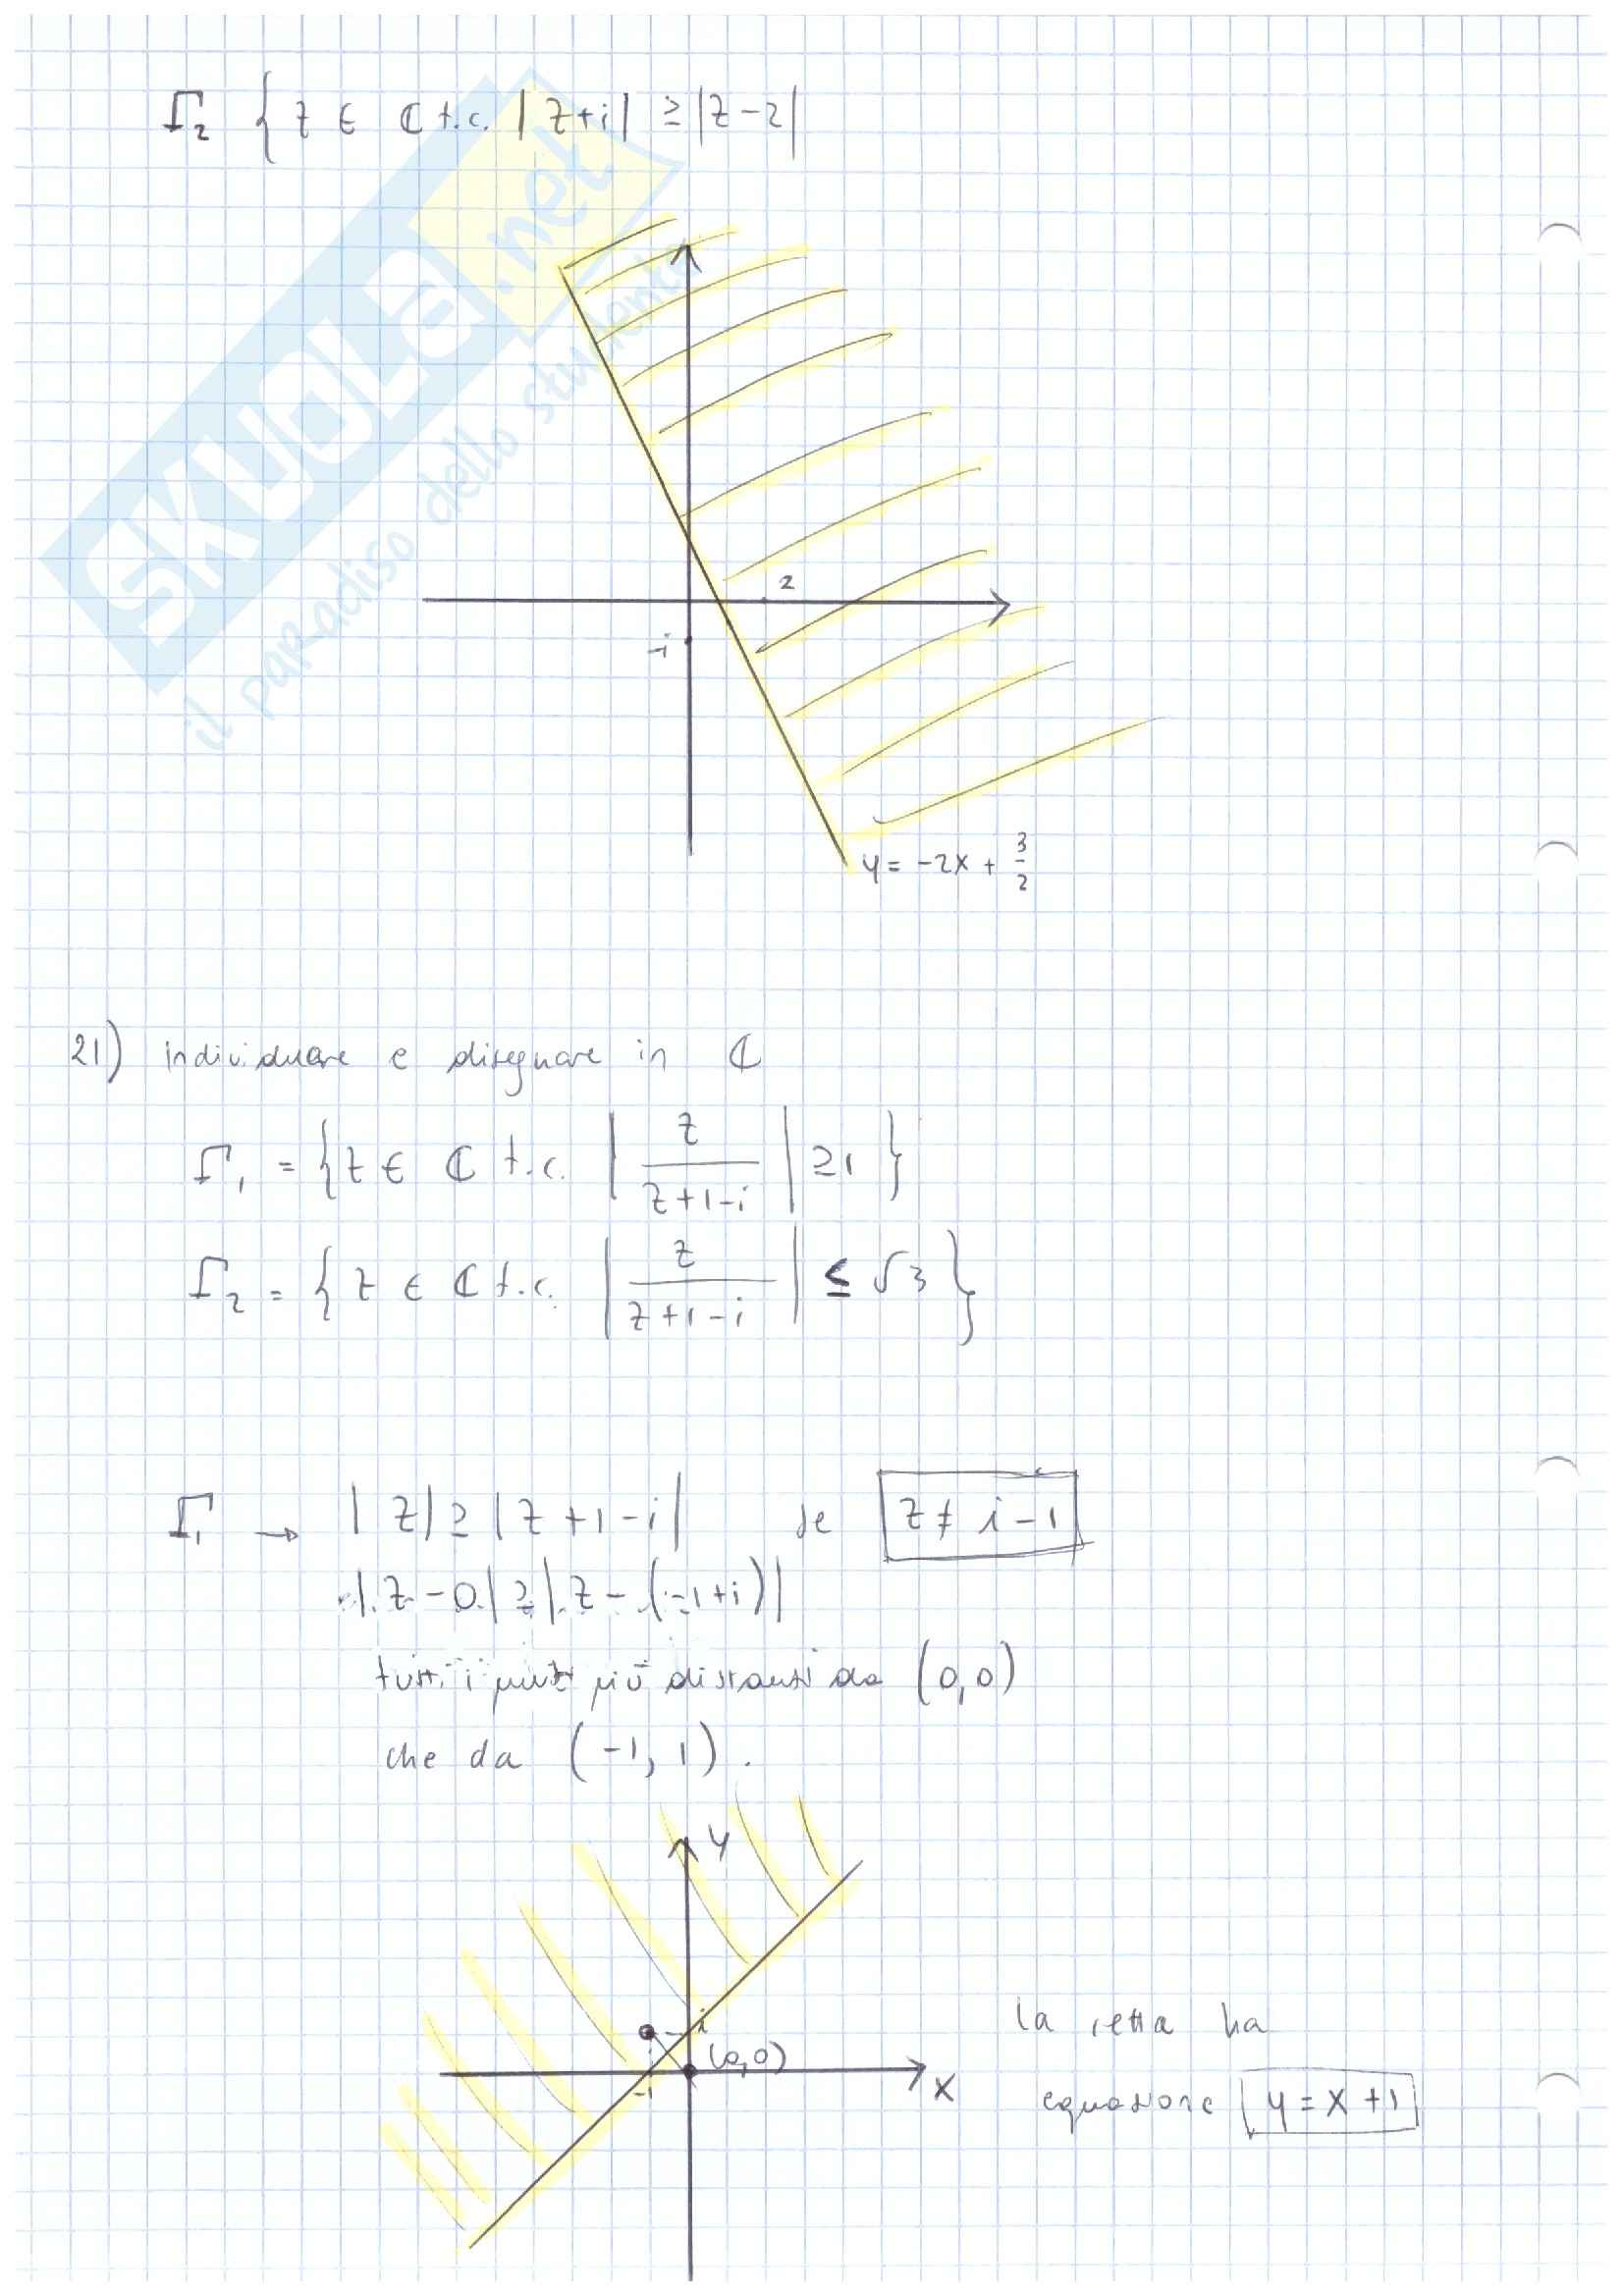 Γ₂ { z ∈ ℂ t.c. |z+i| ≥ |z-2|
SKUOLA.net
il paradiso dello studente
2
-i
y = -2x + 3/2
21) individuare e disegnare in ℂ
Γ₁ = { z ∈ ℂ t.c. | z / z+1-i | ≥ 1 }
Γ₂ = { z ∈ ℂ t.c. | z / z+1-i | ≤ √3 }
Γ₁ → |z| ≥ |z+1-i| se z ≠ i-1
|z-0| ≥ |z-(-1+i)|
tutti i punti più distanti da (0,0)
che da (-1, 1).
y
i
(0,0)
-1
x
la retta ha
equazione y = x+1